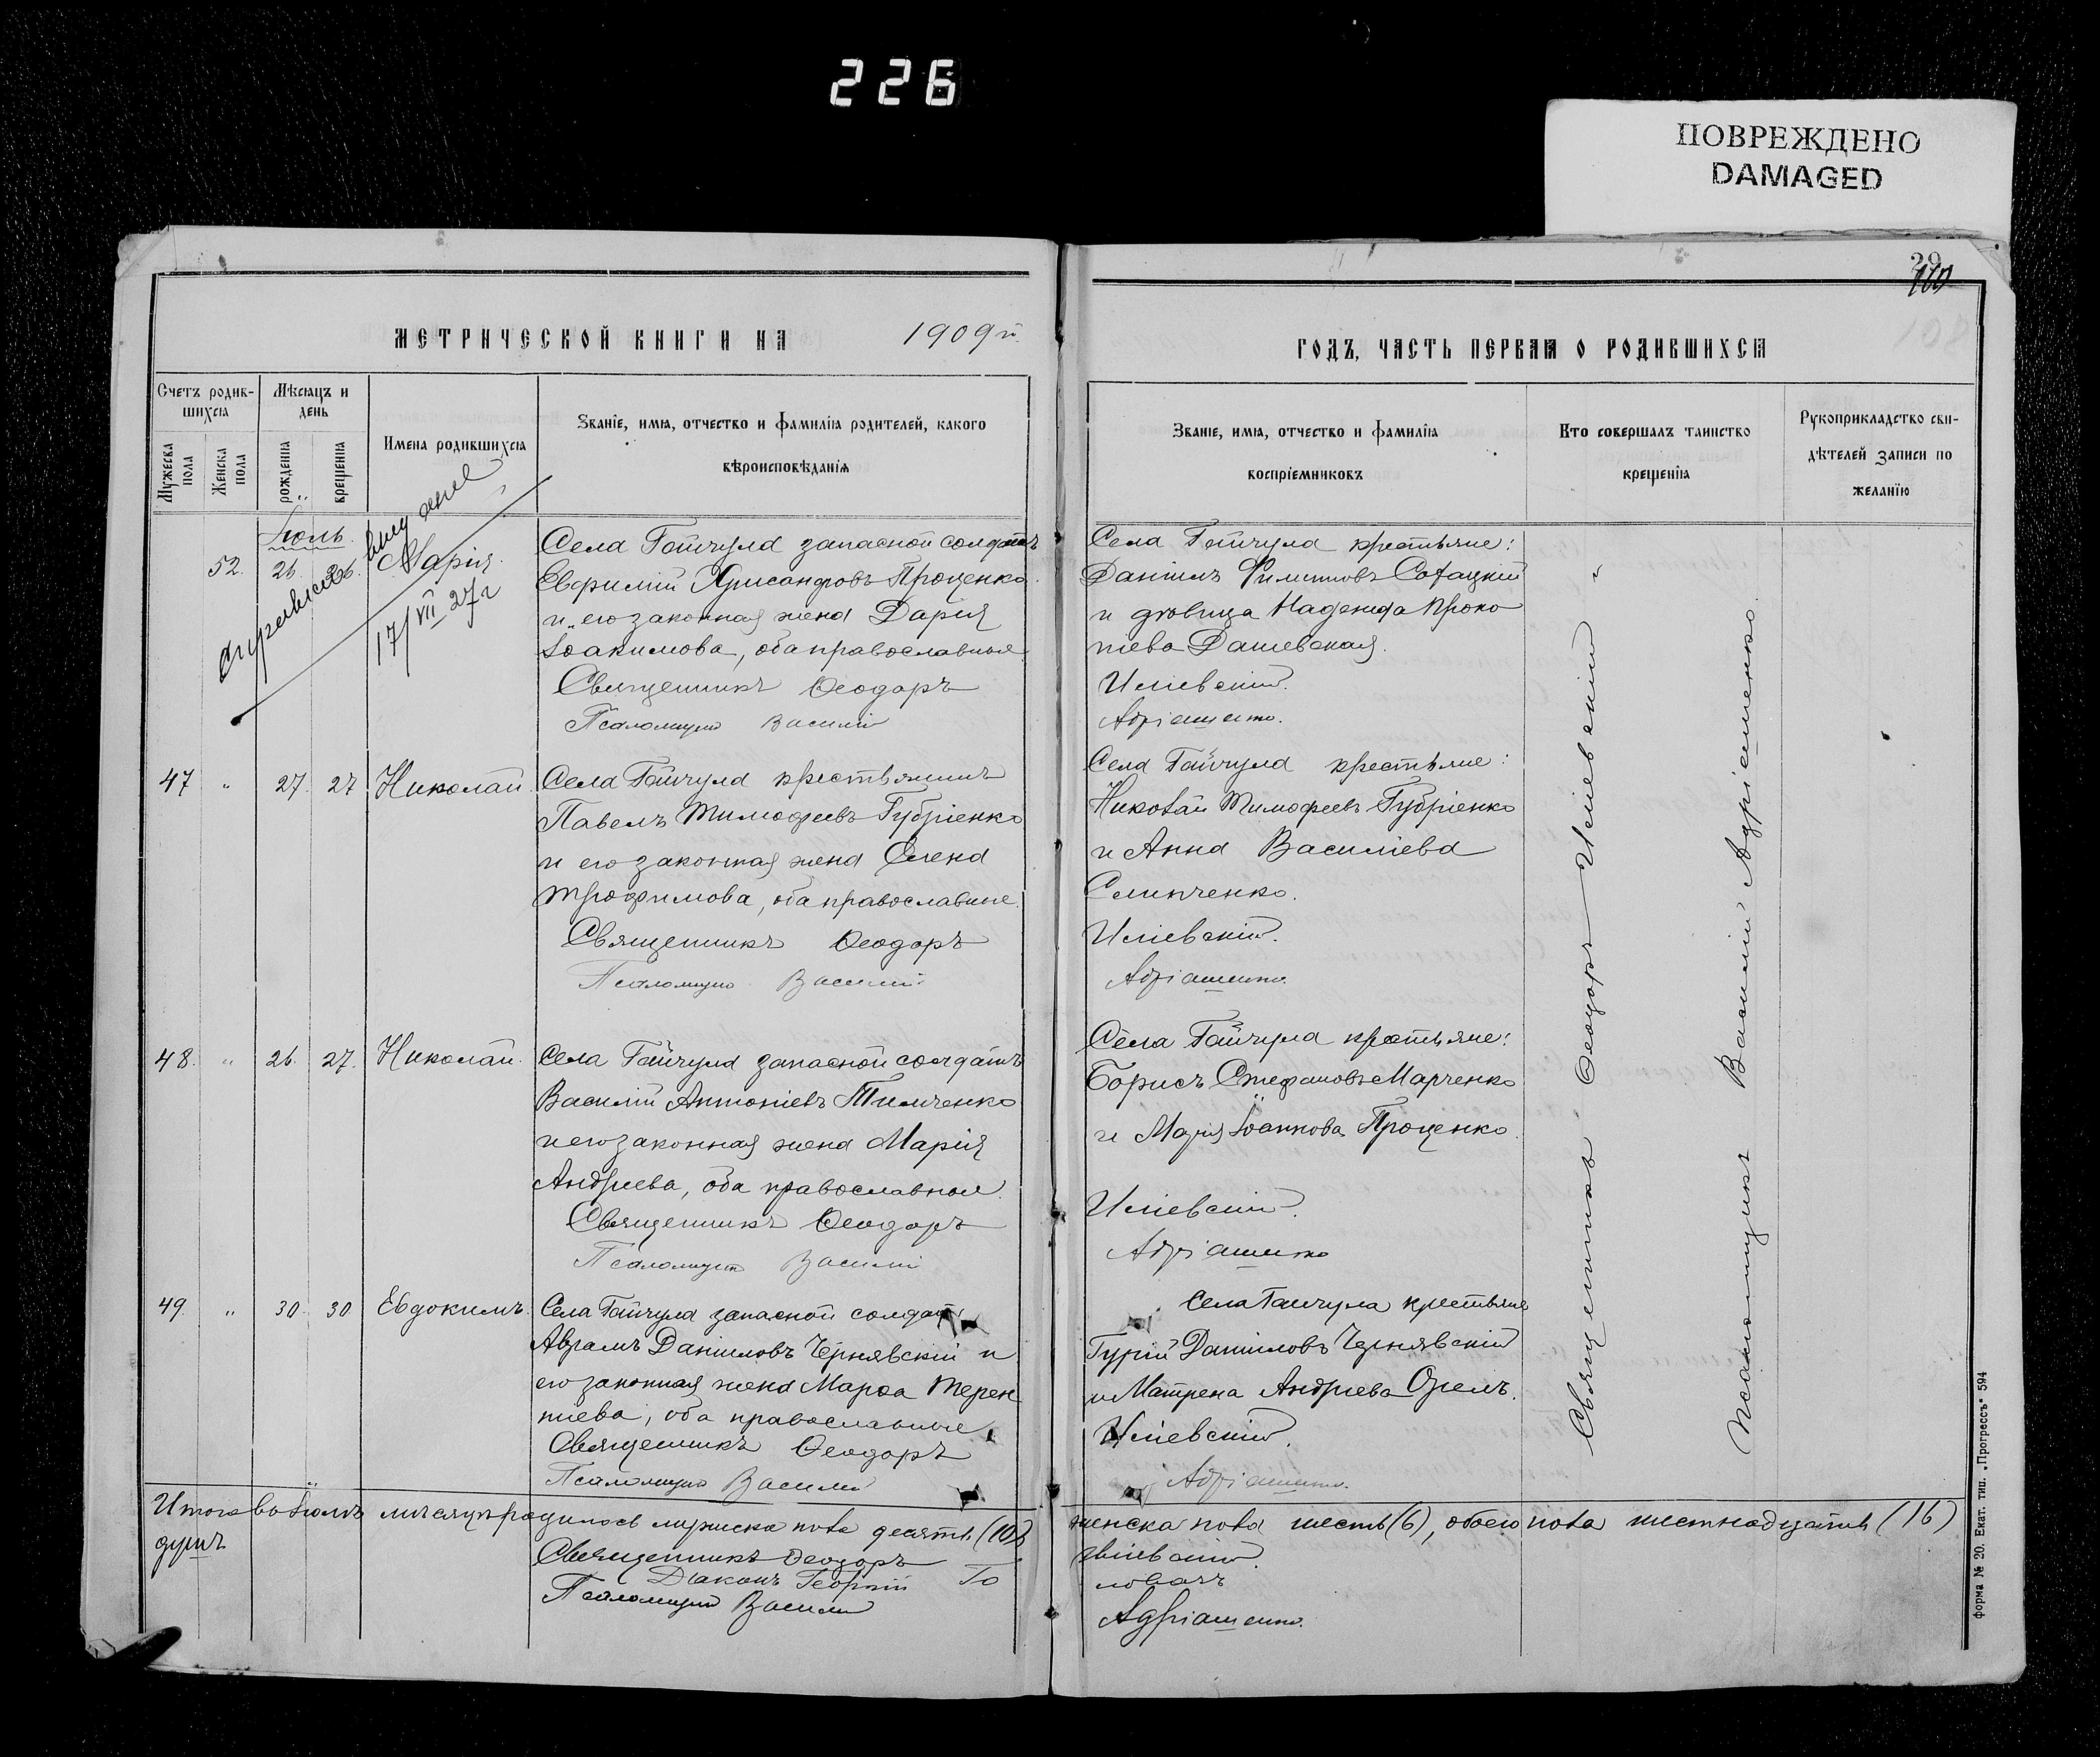 226
ПОВРЕЖДЕНО
DAMAGED
29
110
108
МЕТРИЧЕСКОЙ КНИГИ НА 1909 й
Счетъ родившихся
Мѣсяцъ и день
Имена родившихся
Званіе, имя, отчество и фамилія родителей, какого вѣроисповѣданія
Мужеска пола
Женска пола
рожденія
крещенія
Іюль
52. 26. 26. Марія.
17/VII 27 г
Села Гайчула запасной солдатъ
Евфимій Хрисанфовъ Проценко
и его законная жена Дарія
Іоакимова, оба православные
Священникъ Ѳеодоръ
Псаломщикъ Василій
47 " 27. 27 Николай.
Села Гайчула крестьянинъ
Павелъ Тимофеевъ Губріенко
и его законная жена Елена
Трофимова, оба православные.
Священникъ Ѳеодоръ
Псаломщикъ Василій
48. " 26. 27. Николай.
Села Гайчула запасной солдатъ
Василій Антоніевъ Тимченко
и его законная жена Марія
Андреева, оба православные.
Священникъ Ѳеодоръ
Псаломщикъ Василій
49. " 30. 30 Евдокимъ.
Села Гайчула запасной солдатъ
Аврамъ Даніиловъ Чернявскій и
его законная жена Марѳа Терен
тіева, оба православные
Священникъ Ѳеодоръ
Псаломщикъ Василій
Итого въ Іюлѣ мѣсяцѣ родилось мужска пола десять (10)
душъ
Священникъ Ѳеодоръ
Діаконъ Георгій
Псаломщикъ Василій
ГОДЪ, ЧАСТЬ ПЕРВАЯ О РОДИВШИХСЯ
Званіе, имя, отчество и фамилія воспріемниковъ
Кто совершалъ таинство крещенія
Рукоприкладство свидѣтелей записи по желанію
Села Гайчула крестьяне:
Даніилъ Филипповъ Сотацкій
и дѣвица Надежда Проко
піева Дашевская.
Иліевскій.
Адріашенко.
Села Гайчула крестьяне:
Николай Тимофеевъ Губріенко
и Анна Василіева
Слипченко.
Иліевскій.
Адріашенко.
Села Гайчула крестьяне:
Борисъ Стефановъ Марченко
и Марія Іоаннова Проценко.
Иліевскій.
Адріашенко
Села Гайчула крестьяне
Гурій Даніиловъ Чернявскій
и Матрена Андреева Орелъ.
Иліевскій.
Адріашенко.
женска пола шесть (6), обоего пола шестнадцать (16)
Иліевскій.
Адріашенко.
Священникъ Ѳеодоръ Иліевскій
Псаломщикъ Василій Адріашенко.
форма № 20. Екат. тип. „Прогрессъ" 594